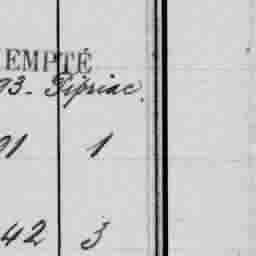 EMPTÉ
93- Pipriac.
91 1
42 3